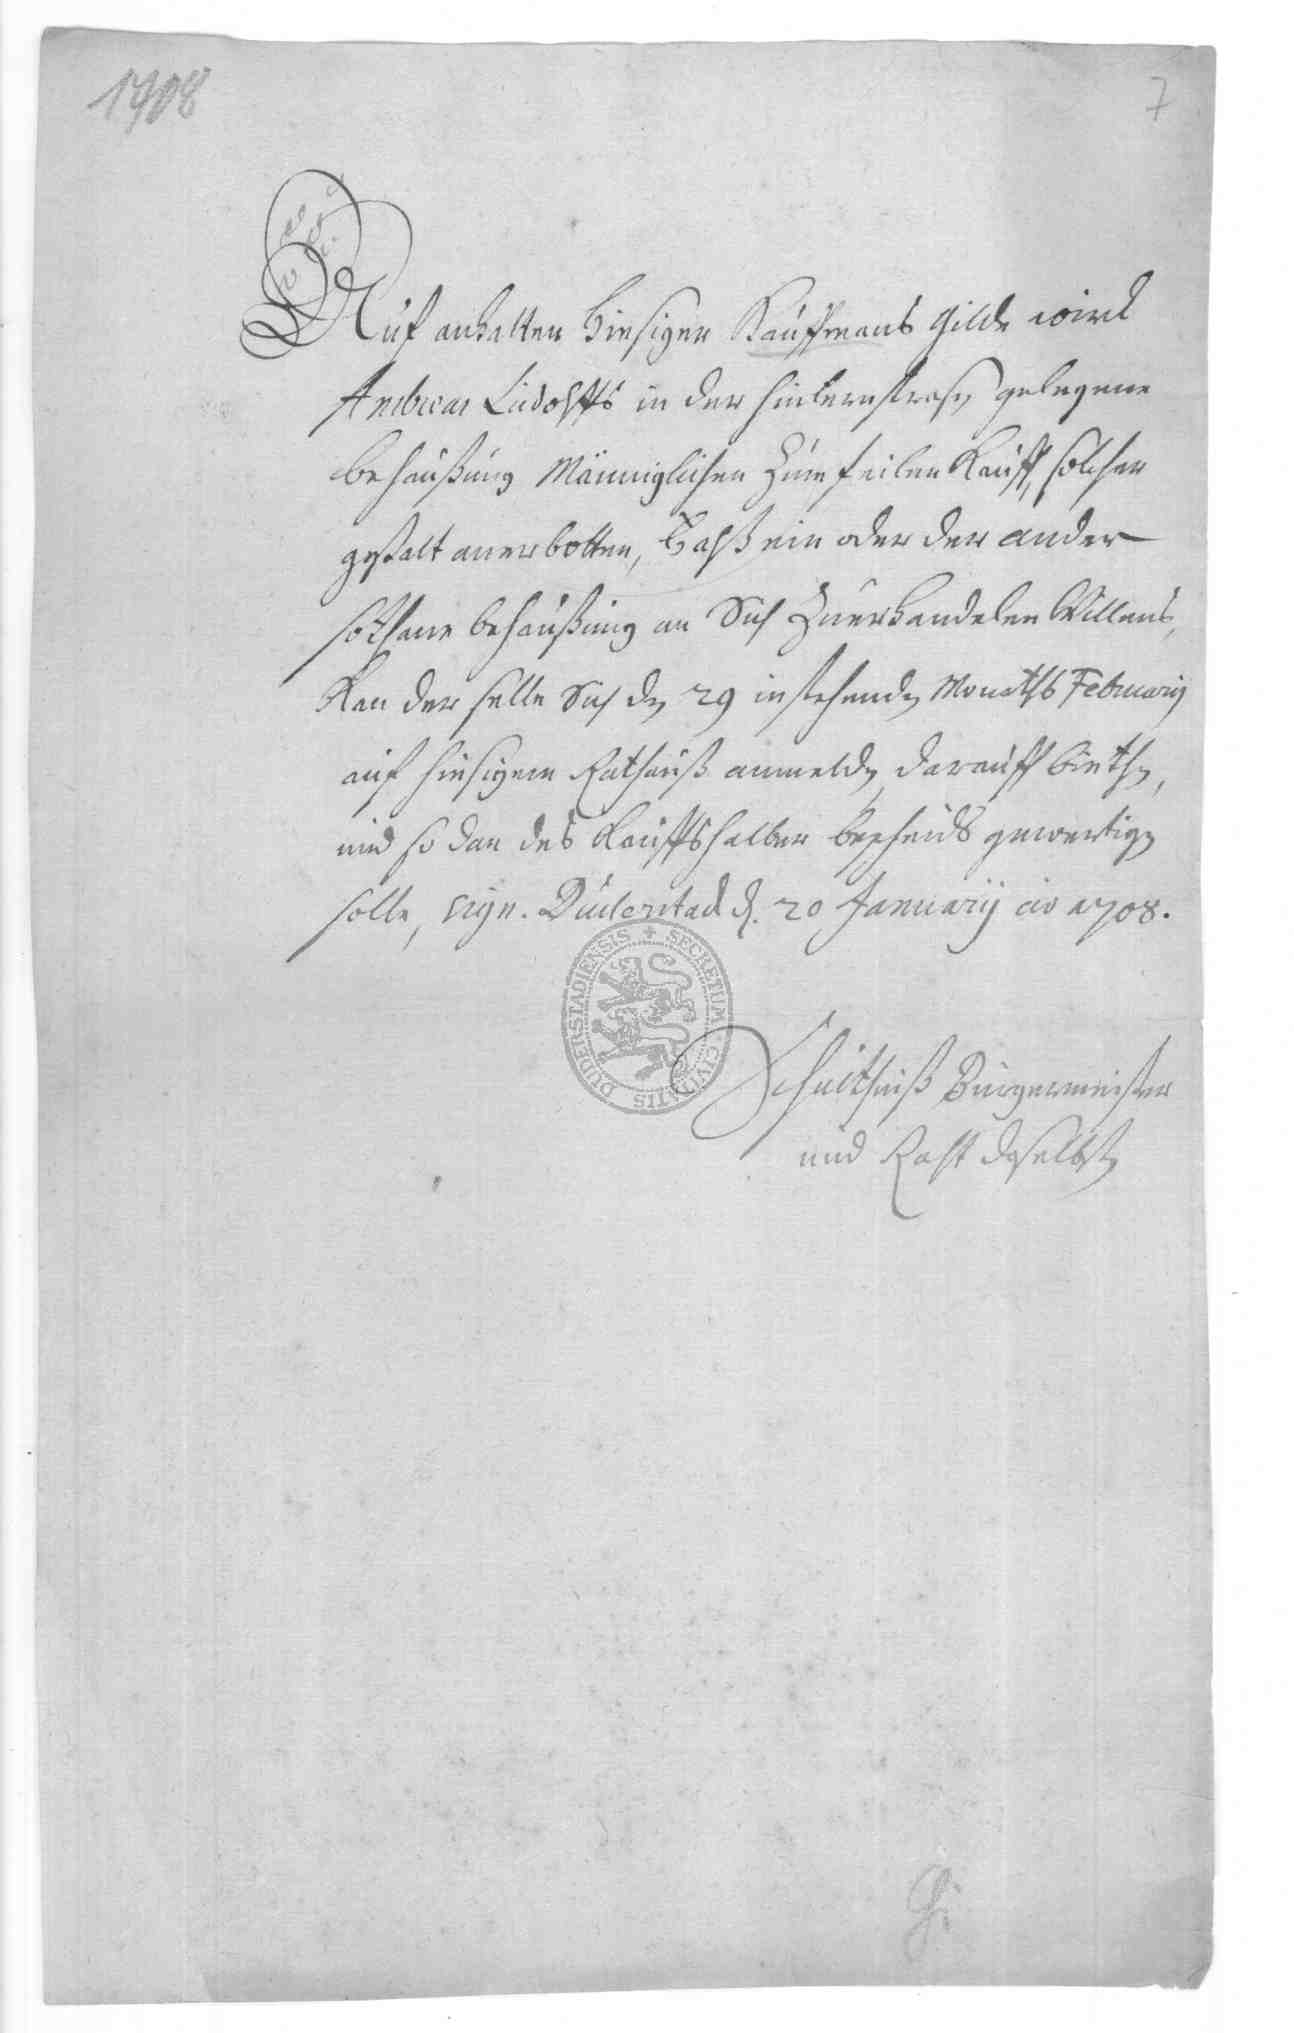 1708
7
Auf anhalten hiesiger Kauffmans Gilde wird
Andreas Ludolffs in der hinternstraßen gelegene
behaußung Männiglichen zum feilen Kauff, solcher
gestalt anerbotten, daß ein oder der ander
sothane behaußung an Sich zuerhandelen Willens,
Kan der selbe Sich den 29 instehenden Monaths Februarij
auf hiesigem Rathauß anmelden, darauff biethen,
und so dan des Kauffs halber bescheids gewertigen
solle, Duderstad d. 20 Januarij 1708.
SECRETUM CIVITATIS DUDERSTADIENSIS
Schultheiß Bürgermeister
und Raht daselbsten